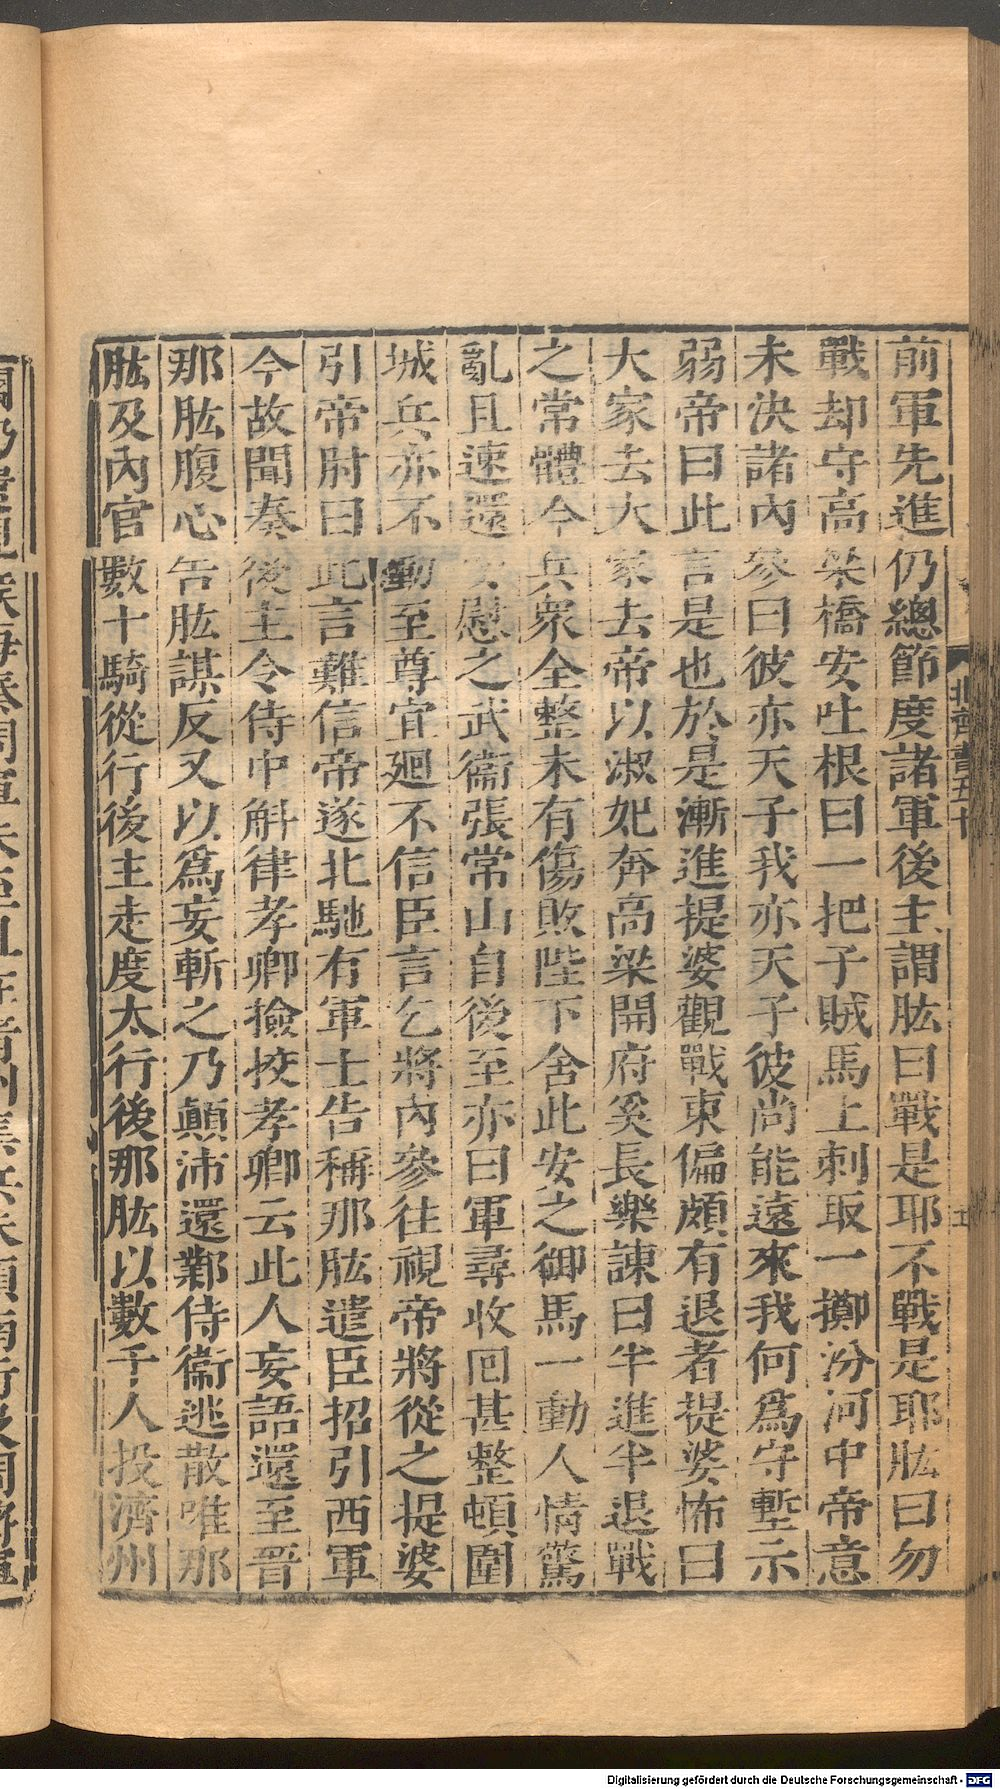 前軍先進仍總節度諸軍後主謂肱曰戰是耶不戰是耶肱曰勿
戰却守高梁橋安吐根曰一把子賊馬上刺取一擲汾河中帝意
未決諸內參曰彼亦天子我亦天子彼尚能遠來我何爲守塹示
弱帝曰此言是也於是漸進提婆觀戰東偏頗有退者提婆怖曰
大家去大家去帝以淑妃奔高梁開府奚長樂諫曰半進半退戰
之常體今兵衆全整未有傷敗陛下舍此安之御馬一動人情驚
亂且速還安慰之武衞張常山自後至亦曰軍尋收回甚整頓圍
城兵亦不動至尊宜廻不信臣言乞將內參往視帝將從之提婆
引帝肘曰此言難信帝遂北馳有軍士告稱那肱遣臣招引西軍
今故聞奏後主令侍中斛律孝卿撿挍孝卿云此人妄語還至晉
那肱腹心告肱謀反又以爲妄斬之乃顛沛還鄴侍衞逃散唯那
肱及內官數十騎從行後主走度太行後那肱以數千人投濟州
北齊書五十
Digitalisierung gefördert durch die Deutsche Forschungsgemeinschaft - DFG